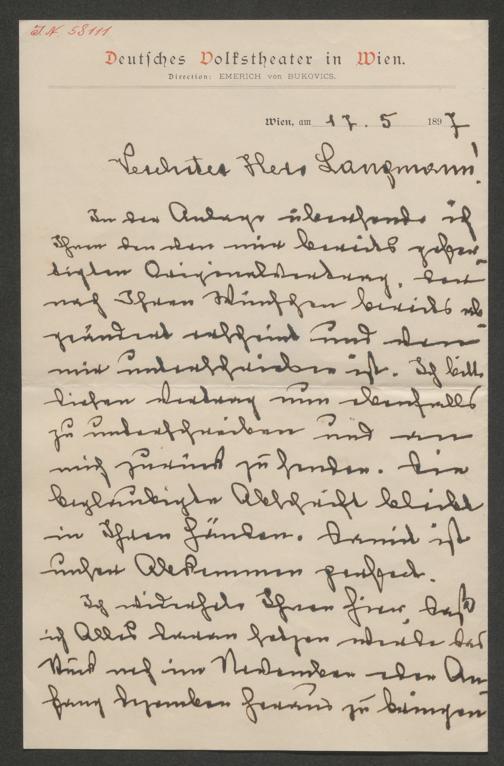 I.N. 58111
Deutsches Volkstheater in Wien.
Direction: EMERICH von BUKOVICS.
Wien, am 17. 5 1897
Verehrter Herr Langmann!
In der Anlage übersende ich
Ihnen den von mir bereits gefer-
tigten Originalvertrag, der
nach Ihren Wünschen bereits ab-
geändert erscheint und von
mir unterschrieben ist. Ich bitte
diesen Vertrag nun ebenfalls
zu unterschreiben und an
mich zurück zu senden. Die
beglaubigte Abschrift bleibt
in Ihren Händen. Damit ist
unser Abkommen perfect.
Ich widerhole Ihnen hier, daß
ich Alles daran setzen werde das
Stück noch im November oder An-
fang Dezember heraus zu bringen